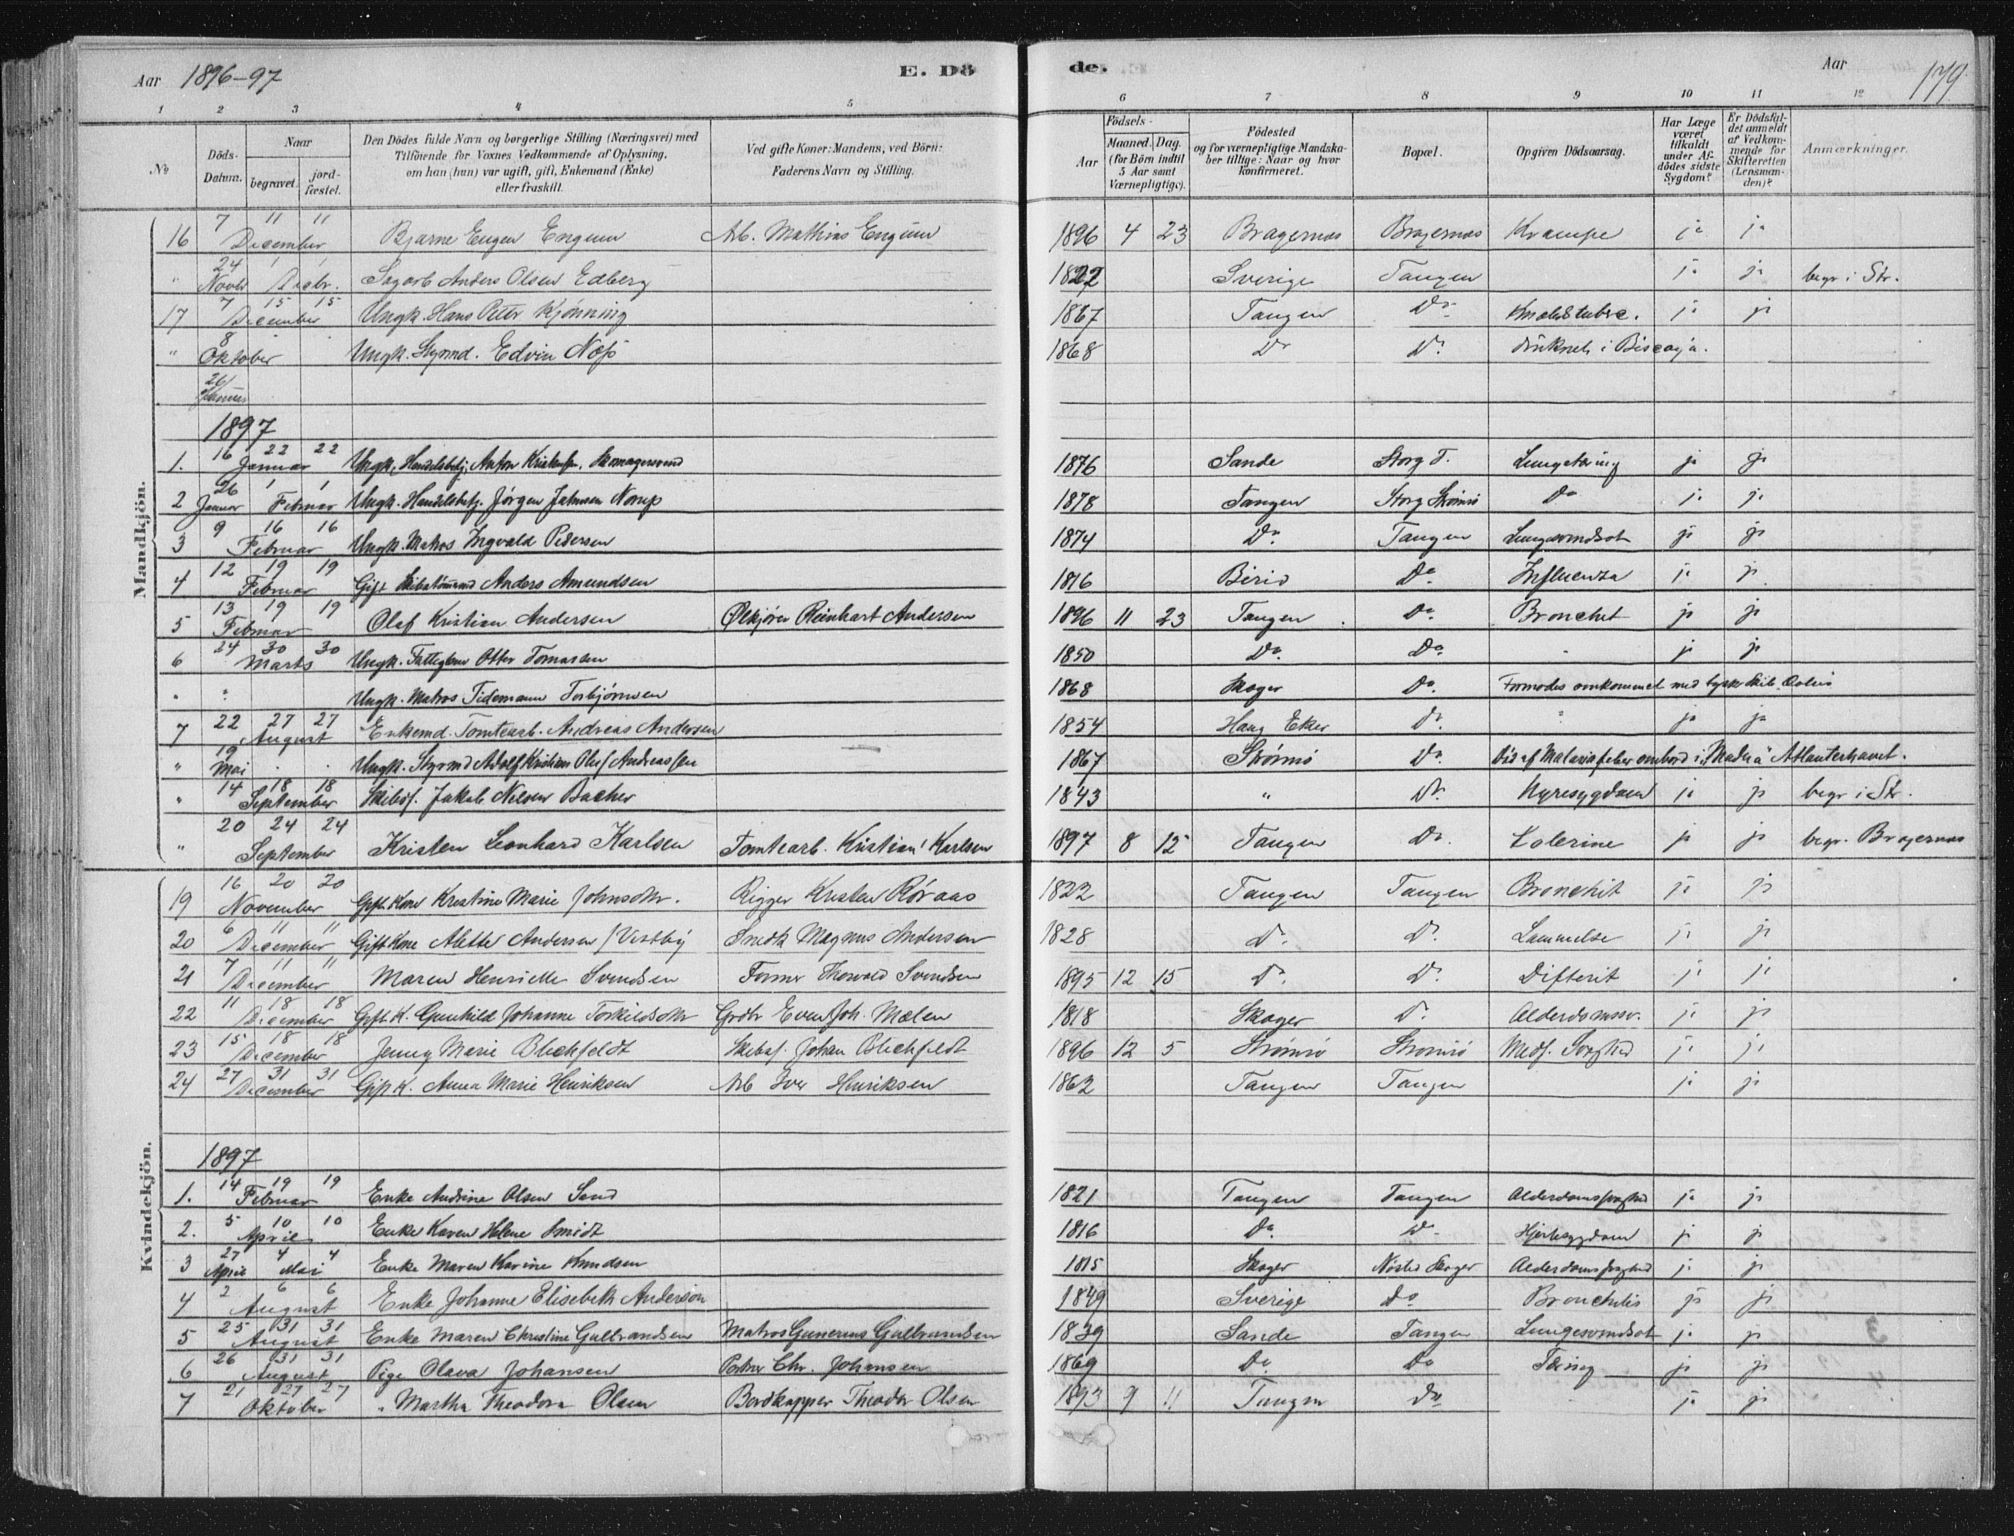 Aar 1896-97 E. Dö de. Aar 179.
1 2 3 4 5 6 7 8 9 10 11 12
No Döds-Datum. Naar begravet. jordfæstet. Den Dödes fulde Navn og borgerlige Stilling (Næringsvei) med Tilföiende for Voxnes Vedkommende af Oplysning, om han (hun) var ugift, gift, Enkemand (Enke) eller fraskilt. Ved gifte Koner: Mandens, ved Börn: Faderens Navn og Stilling. Födsels- Aar Maaned. Dag. (for Börn indtil 5 Aar samt Værnepligtige). Födested og for værnepligtige Mandskaber tillige: Naar og hvor konfirmeret. Bopæl. Opgiven Dödsaarsag. Har Læge været tilkaldt under Afdödes sidste Sygdom? Er Dödsfaldet anmeldt af Vedkommende for Skifteretten (Lensmanden)? Anmærkninger.
Mandkjön.
16 7 11 11 December Bjarne Eugen Engum Arb. Mathias Engum 1896 4 23 Bragernæs Bragernæs Krampe ja ja
" 24 Novbr 1 1 Decbr. Anders Olsen Edberg 1822 Sverige Tangen ja ja begr. i Str.
17 7 15 15 December Ungk. Hans Peter Kjønning 1867 Tangen Do ja ja
" 8 Oktober Ungk. Styrmd. Edvin Næss 1868 Do Do druknet i Biscaya.
26/
1897
1. 16 22 22 Januar Ungk. Handelsbetj. Anton Skomagersvend 1876 Sande Storg T. Lungetæring ja ja
2 26 Januar 1 1 Februar Ungk. Handelsbetj. Jørgen Norup 1878 Tangen Storg Strømsø Do ja ja
3 9 16 16 Februar Ungk. Matros Ingvald Pedersen 1874 Do Tangen Lungesvindsot ja ja
4 12 19 19 Februar Gift Skibstømmermd Anders Amundsen 1816 Birid Do Influenza ja ja
5 13 19 19 Februar Olaf Kristian Andersen Ølkjører Reinhart Andersen 1896 11 23 Tangen Do Bronchit ja ja
6 24 30 30 Marts Ungk. Fattiglem Otter Tomassen 1850 Do Do ja ja
" " Ungk. Matros Tidemann Torbjørnsen 1868 Skoger Do Formodes omkommet med tysk Skib
7 22 27 27 August Enkemd. Tomtearb. Andreas Andersen 1854 Haug Eker Do " ja ja
" 19 Mai Ungk. Styrmd Adolf Kristian Oluf Andreassen 1867 Strømsø Do Død af Malariafeber ombord i "Madeia" Atlanterhavet.
" 14 18 18 September Skibsf. Jakob Nelsen Bacher 1843 " Do Nyresygdom ja ja begr. i Str.
" 20 24 24 September Kristen Leonhard Karlsen Tomtearb. Kristian Karlsen 1897 8 15 Tangen Do Kolerine ja ja begr. Bragernæs
Kvindekjön.
19 16 20 20 November Gift Kone Kristine Marie Johnsdtr. Rigger Kristen Røraas 1822 Tangen Tangen Bronchit ja ja
20 6 11 11 December Gift Kone Alette Andersen f Vestby Snedk Magnus Andersen 1828 Do Do Lammelse ja ja
21 7 11 11 December Maren Henriette Svendsen Former Thorvald Svendsen 1895 12 15 Do Do Difterit ja ja
22 11 18 18 December Gift K. Gunhild Johanne Torkildsdtr Grdbr Even Joh. Mælen 1818 Skoger Do Alderdomssv. ja ja
23 15 18 18 December Jenny Marie Blichfeldt Skibsf. Johan Blichfeldt 1896 12 5 Strømsø Strømsø Medf. Svaghed ja ja
24 27 31 31 December Gift K. Anna Marie Henriksen Arb Iver Henriksen 1862 Tangen Tangen ja ja
1897
1. 14 19 19 Februar Enke Andrine Olsen Sand 1821 Tangen Tangen Alderdomssvaghed ja ja
2. 5 10 10 April Enke Karen Helene Smidt 1816 Do Do Hjertesygdom ja ja
3 27 April 4 4 Mai Enke Maren Karine Knudsen 1815 Skoger Nøsted Skoger Alderdomssvaghed ja ja
4 2 6 6 August Enke Johanne Elisabeth Anderson 1849 Sverige Do Bronchitis ja ja
5 25 31 31 August Enke Maren Christine Gulbrandsen Matros Gunerius Gulbrandsen 1839 Sande Tangen Lungesvindsot ja ja
6 26 31 31 August Pige Olava Johansen Chr. Johansen 1869 Do Do Tæring ja ja
7 21 27 27 Oktober " Martha Theodora Olsen Bordkapper Theodor Olsen 1893 9 11 Tangen Do ja ja